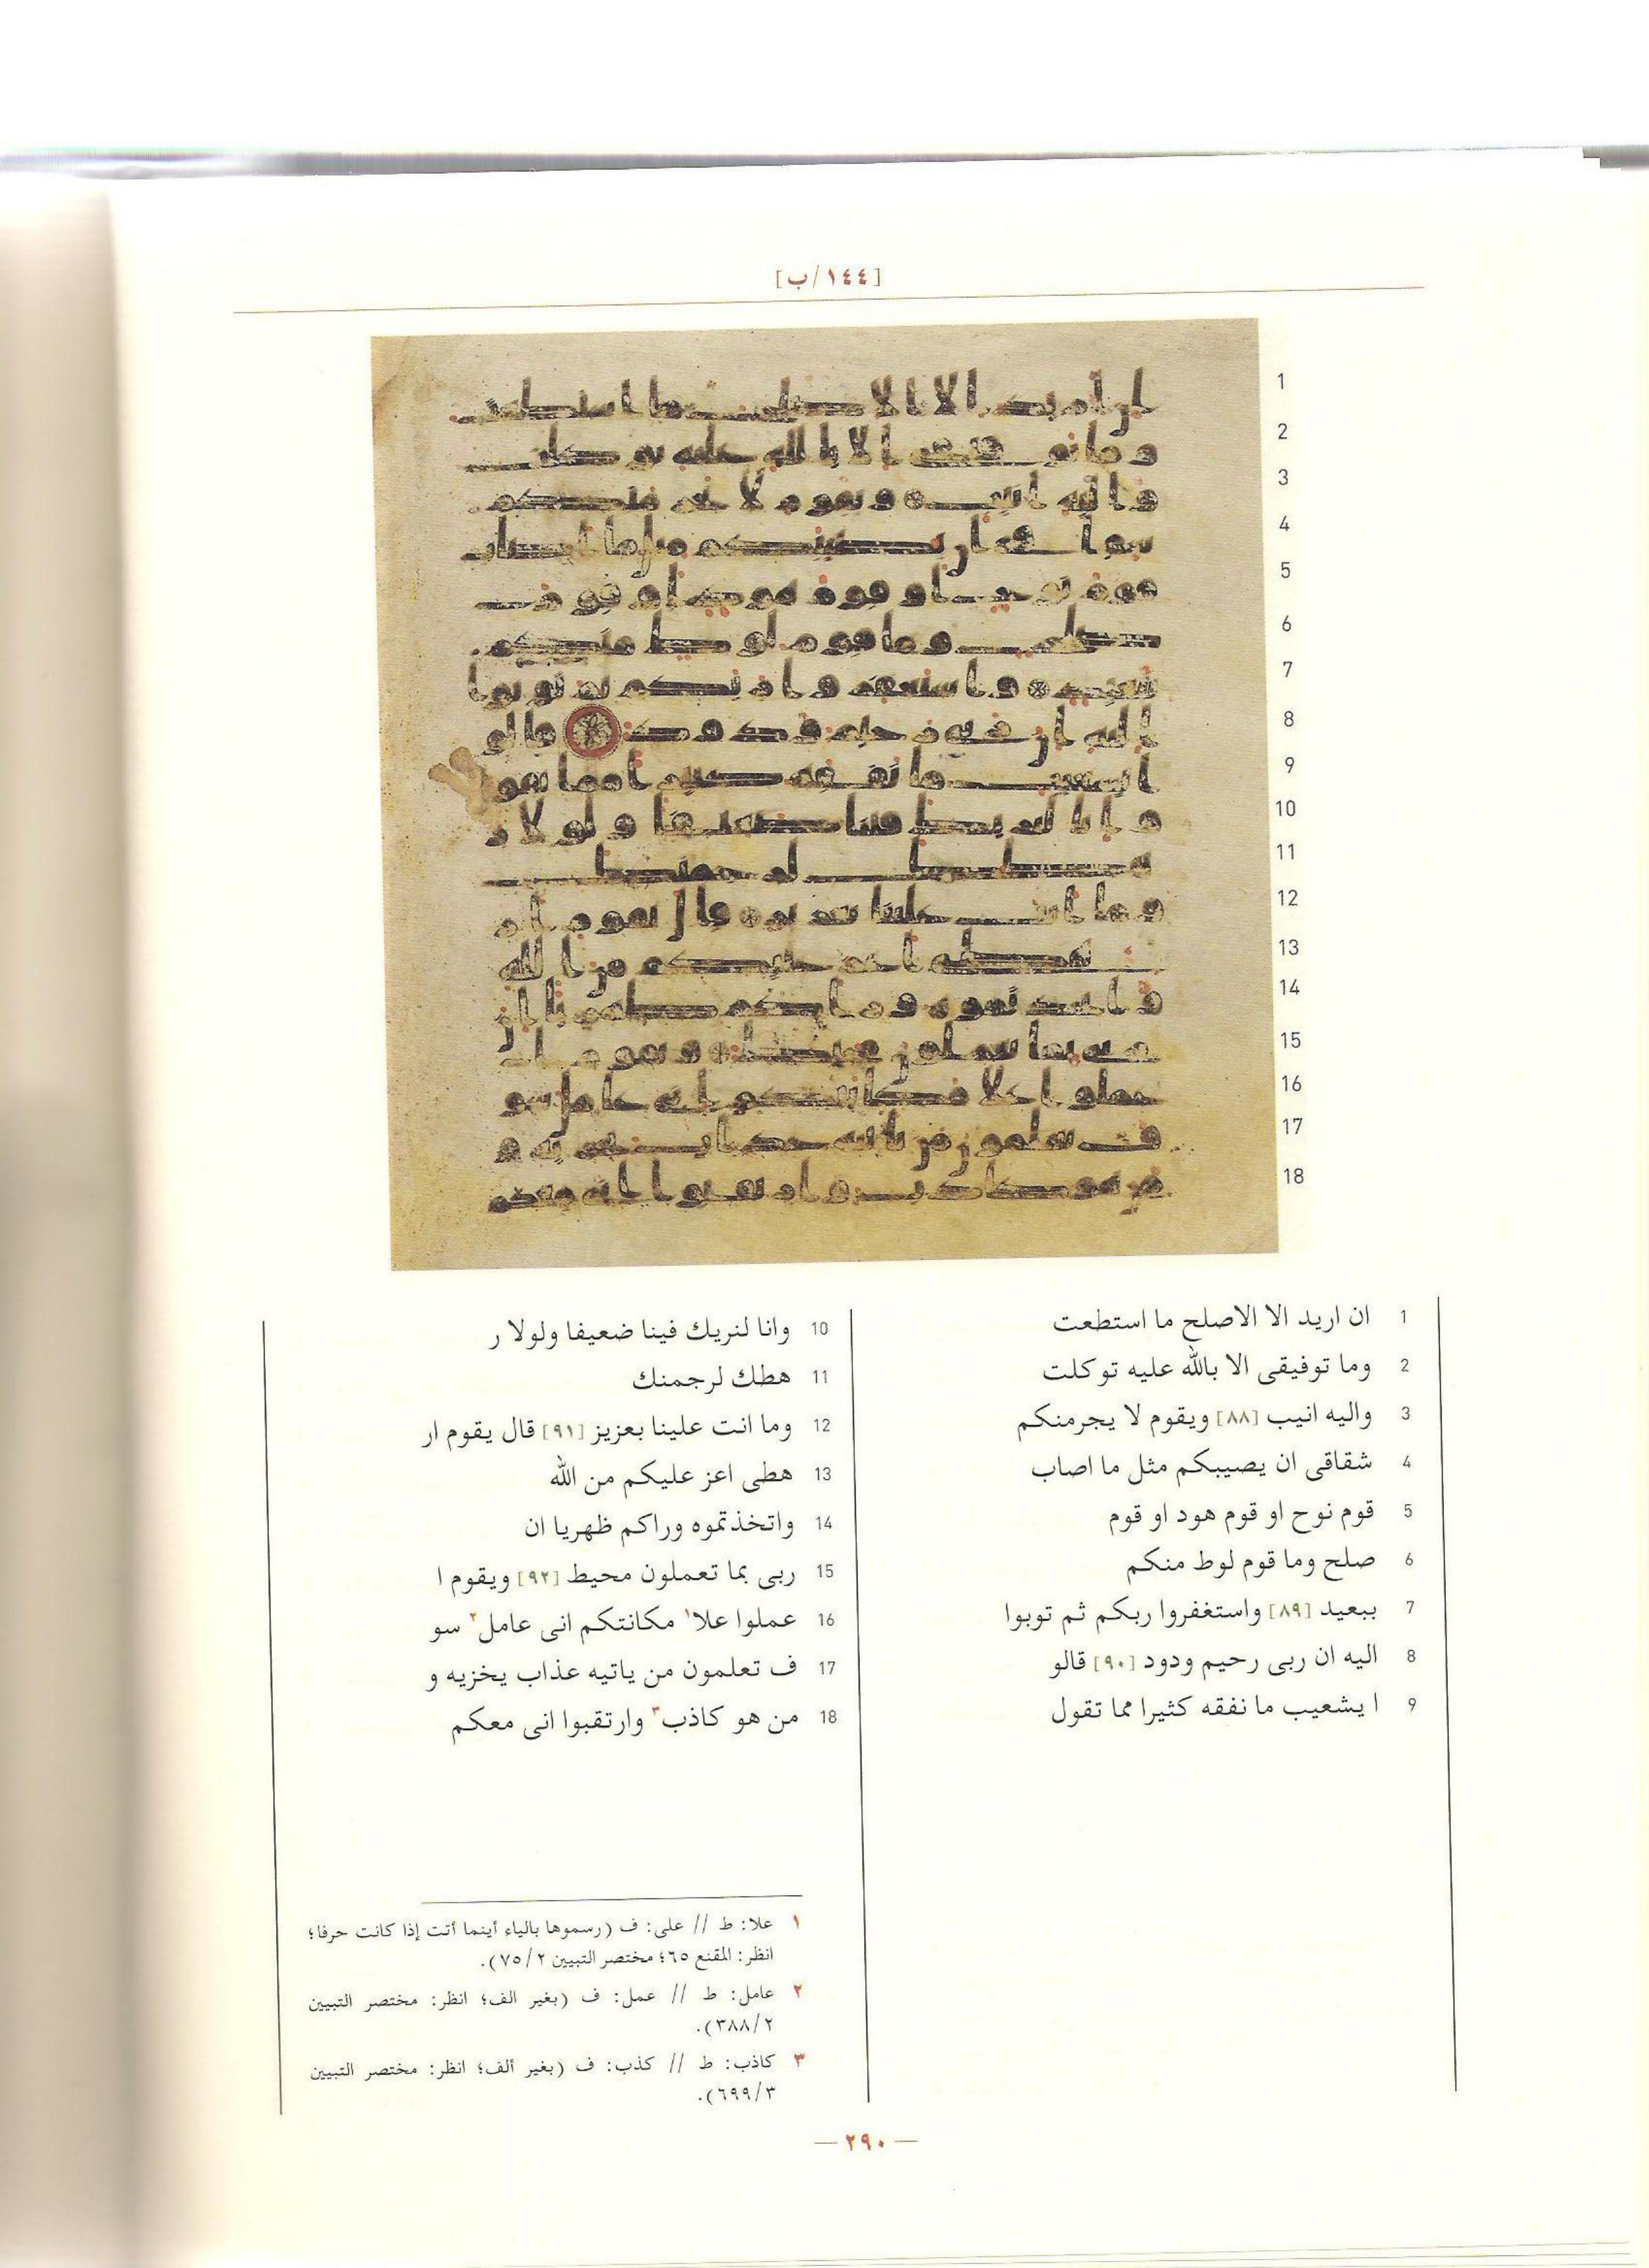 [١٤٤/ب]
1 ان اريد الا الاصلح ما استطعت
2 وما توفيقى الا بالله عليه توكلت
3 واليه انيب [٨٨] ويقوم لا يجرمنكم
4 شقاقى ان يصيبكم مثل ما اصاب
5 قوم نوح او قوم هود او قوم
6 صلح وما قوم لوط منكم
7 ببعيد [٨٩] واستغفروا ربكم ثم توبوا
8 اليه ان ربى رحيم ودود [٩٠] قالو
9 ا يشعيب ما نفقه كثيرا مما تقول
10 وانا لنريك فينا ضعيفا ولولا ر
11 هطك لرجمنك
12 وما انت علينا بعزيز [٩١] قال يقوم ار
13 هطى اعز عليكم من الله
14 واتخذتموه وراكم ظهريا ان
15 ربى بما تعملون محيط [٩٢] ويقوم ا
16 عملوا علا١ مكانتكم انى عامل٢ سو
17 ف تعلمون من ياتيه عذاب يخزيه و
18 من هو كاذب٣ وارتقبوا انى معكم
١ علا: ط // على: ف (رسموها بالياء أينما أتت إذا كانت حرفا؛
انظر: المقنع ٦٥؛ مختصر التبيين ٧٥/٢).
٢ عامل: ط // عمل: ف (بغير الف؛ انظر: مختصر التبيين
٣٨٨/٢).
٣ كاذب: ط // كذب: ف (بغير ألف؛ انظر: مختصر التبيين
٦٩٩/٣).
— ٢٩٠ —